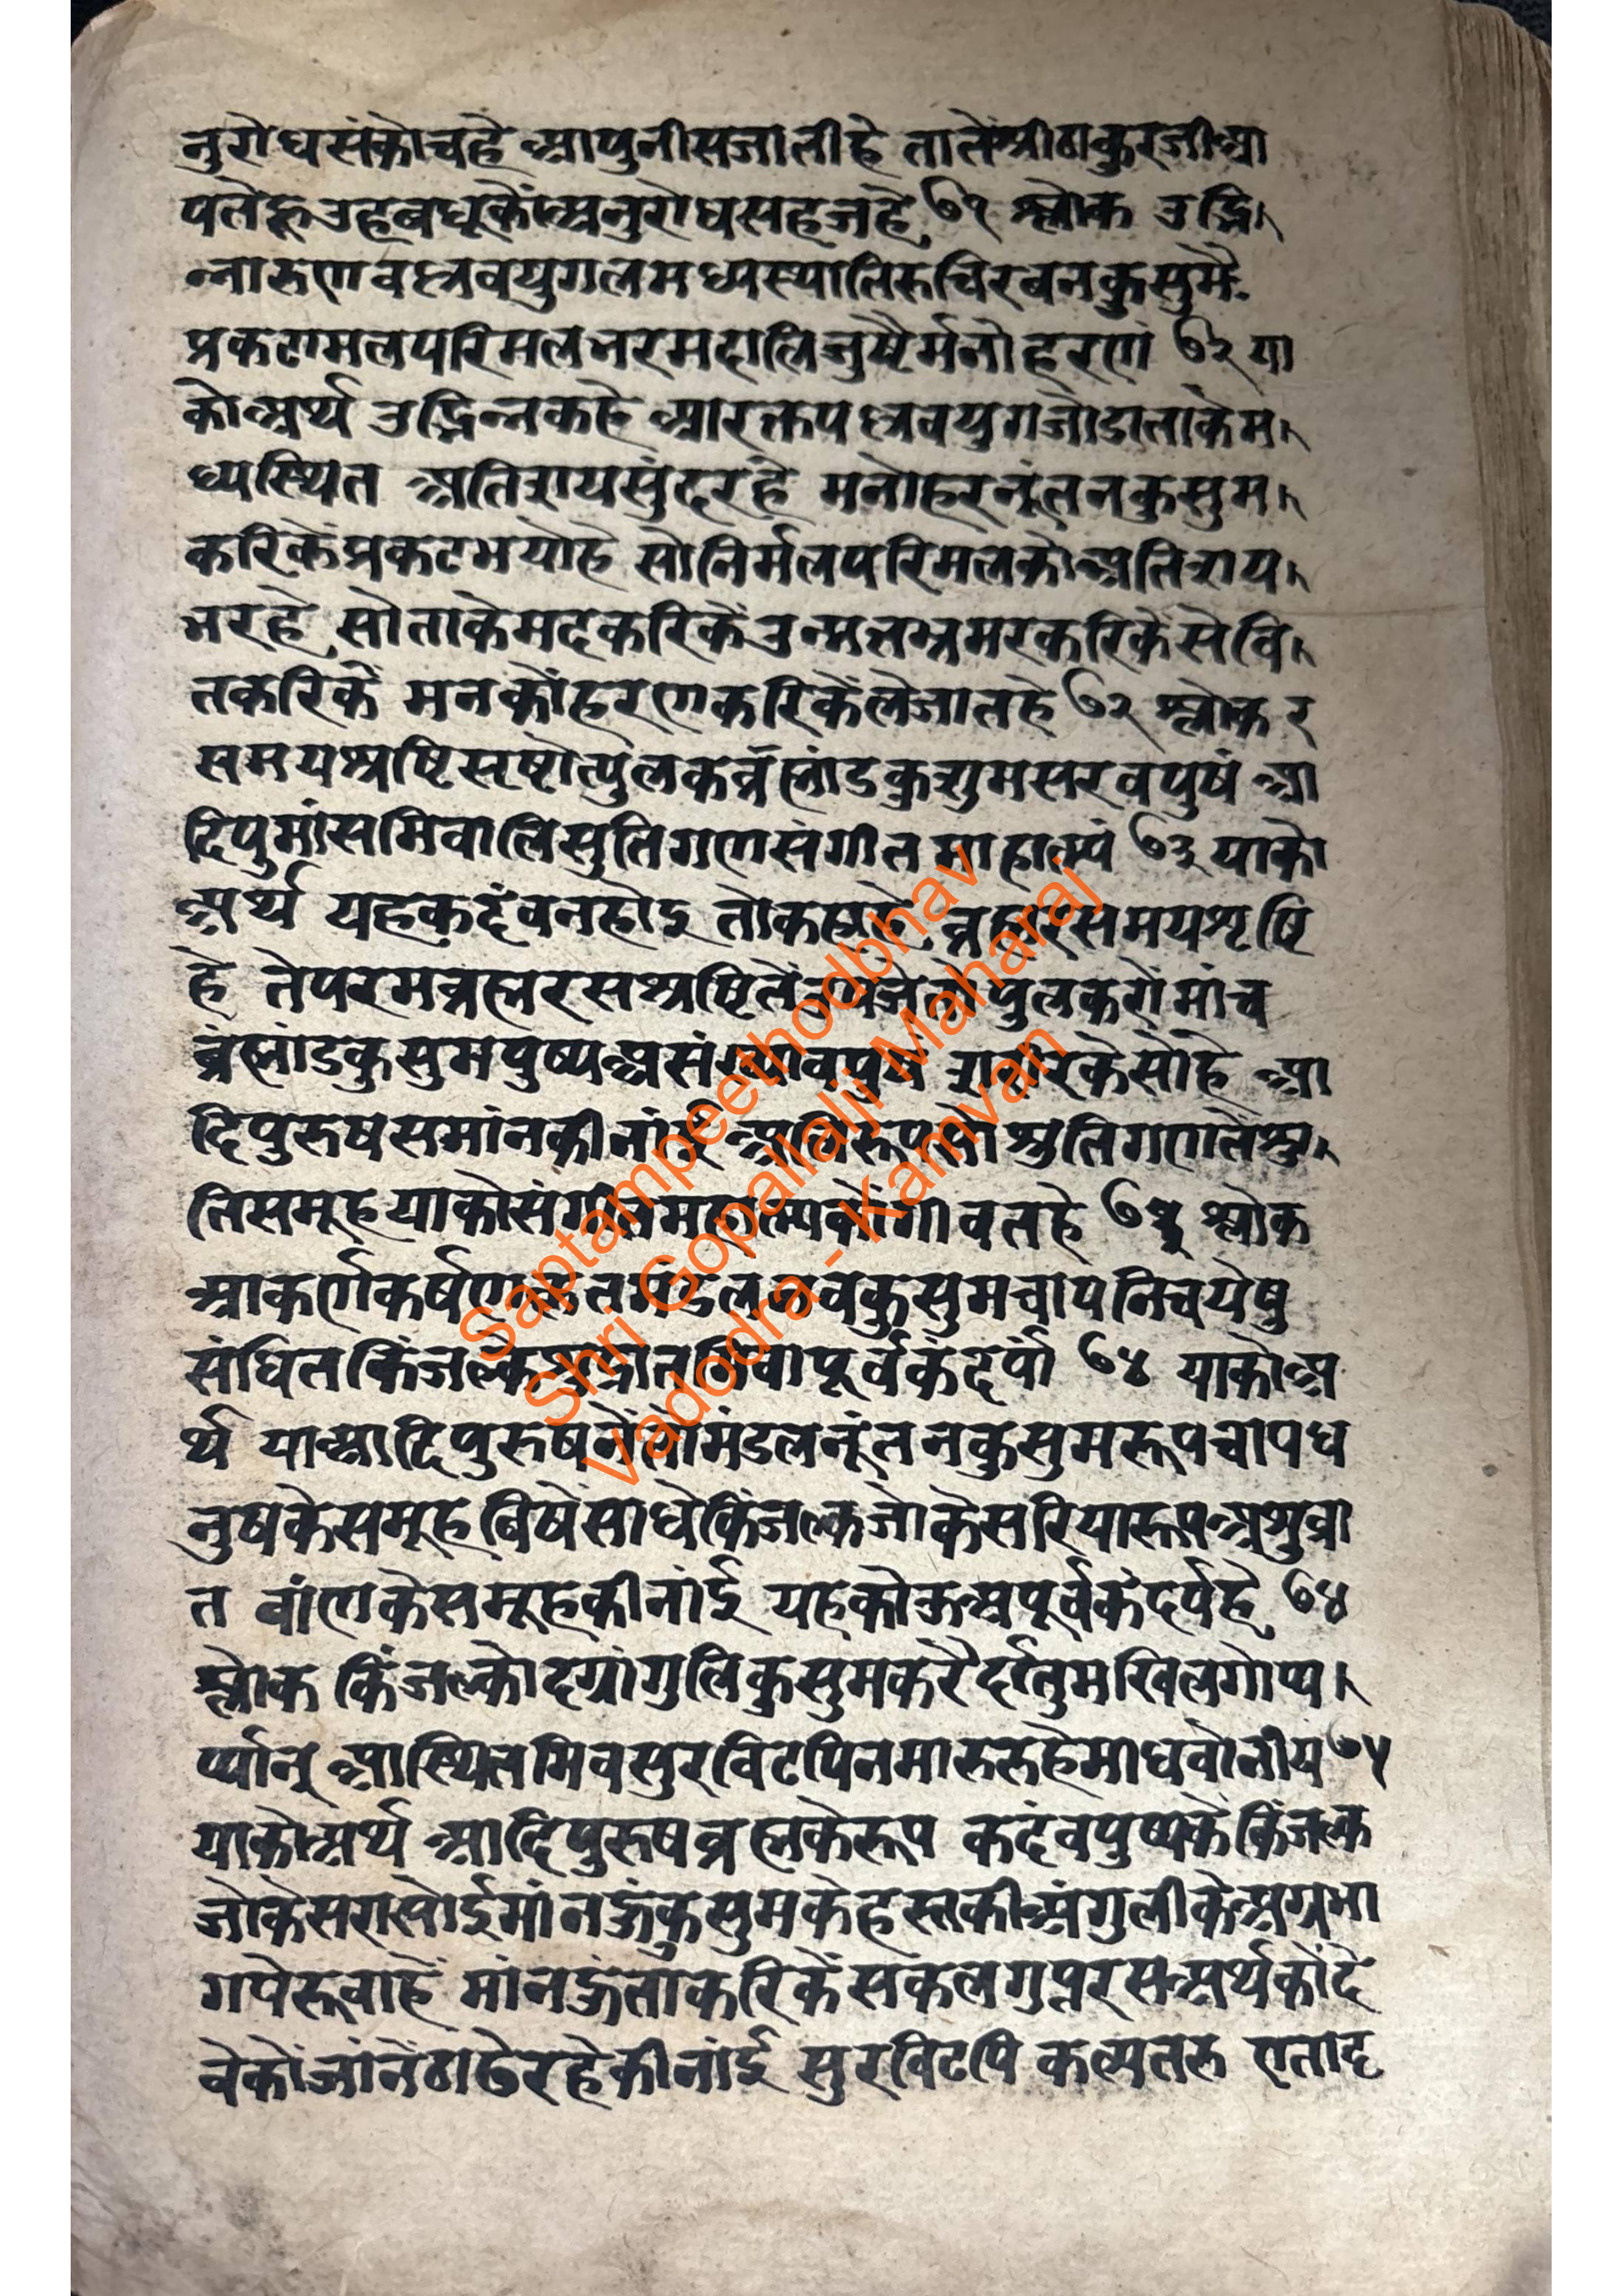 नुरोधसंकोचहे आपुनीसजातीहे तातेंश्रीठाकुरजीआ
पतेहू उहबधूकोंअनुरोधसहजहे ७१ श्लोक उद्भि
न्नारुणवल्लवयुगलमध्यस्थातिरुचिरबनकुसुमैः
प्रकटामलपरिमलभरमदालिजुष्टैर्मनोहरणं ७२ या
कोअर्थ उद्भिन्नकहे आरक्तपल्लवयुगजोडाताकेम
ध्यस्थित अतिशयसुंदरहे मनोहरनूंतनकुसुम
करिकेंप्रकटभयोहे सोनिर्मलपरिमलकोअतिशय
भरहे सोताकेमदकरिकेंउन्मत्तभ्रमरकरिकेंसेवि
तकरिकें मनकोंहरणकरिकेंलेजातहे ७२ श्लोक र
समयश्रष्टिसृष्टोत्पुलकब्रँह्मांडकुशुमसरवपुषं आ
दिपुमांसमिवालिस्रुतिगणसंगीतमाहात्म्यं ७३ याको
अर्थ यहकदंवनहोइ तोकहाहे ब्रह्मरसमयशृष्टि
हे तेपरमब्रह्मरसश्रष्टितें उपजेतोपुलकरोमांच
ब्रंह्मांडकुसुमपुष्पअसंख्यावपुषं शरीरकेसोहे आ
दिपुरुषसमांनकीनांई अलिरूपसोश्रुतिगणतेंश्रु
तिसमूहयाकोसंगीतमहात्म्यकोंगावतहे ७३ श्लोक
आकर्णकर्षणोद्धतमंडलनवकुसुमचापनिचयेषु
संधितकिंजल्कशुगव्रातमिवापूर्वकंदर्पं ७४ याकोअ
र्थ याआदिपुरुषनेंतोमंडलनूंतनकुसुमरूपचापध
नुषकेसमूहबिषेंसाधेकिंजल्कजोकेसरियारूपअश्रुव्रा
त बांणकेसमूहकीनांई यहकोऊअपूर्वकंदर्पहे ७४
श्लोक किंजल्कोदग्रांगुलिकुसुमकरैर्दातुमखिलगोप्य
र्थान् आस्थितमिवसुरविटपिनमारुतहेमाघवोनीय ७५
याकोअर्थ आदिपुरुषब्रह्मकेरूप कदंवपुष्पकेकिंजल्क
जोकेसरासोईमांनऊंकुसुमकेहस्तकीअंगुलीकेअग्रभा
गपेरूवाहें मांनऊंताकरिकेंसकलगुप्तरसअर्थकोंदे
वेकोंजांनेंठाढेरहेकीनांई सुरविटपि कल्पतरु एताद